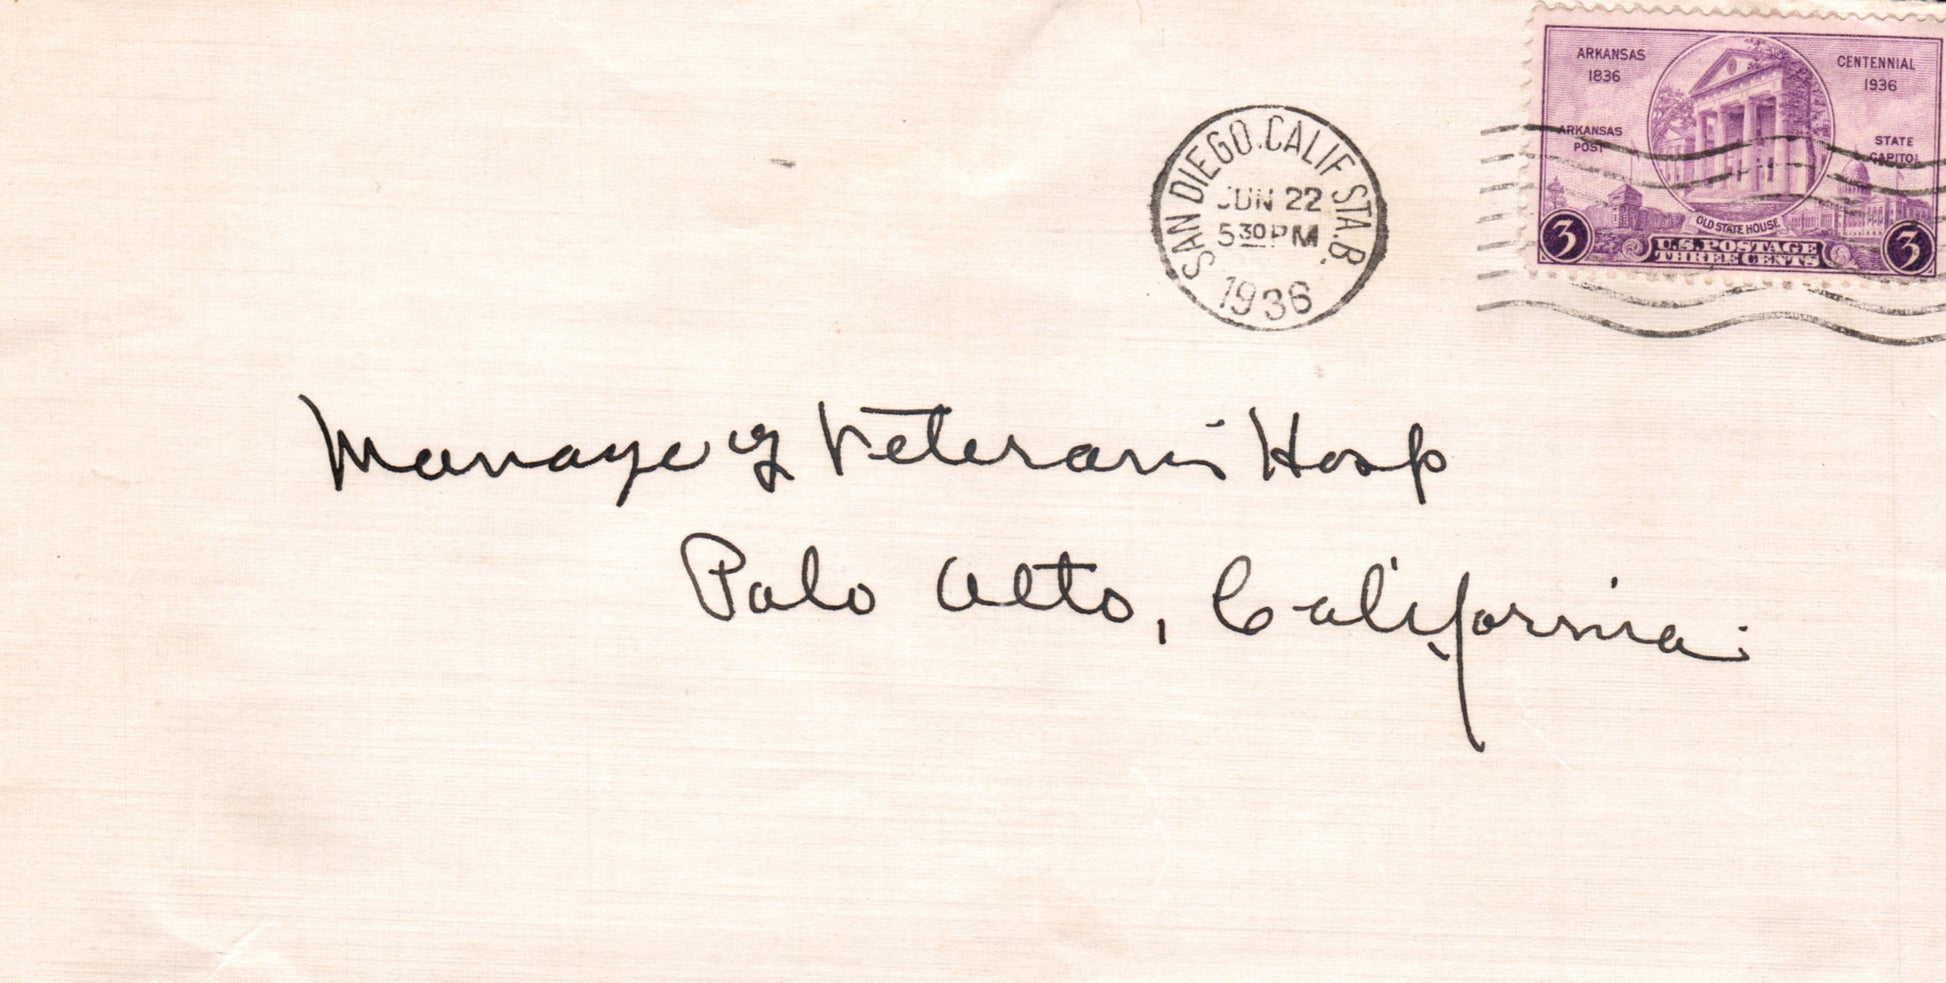 ARKANSAS 1836
CENTENNIAL 1936
ARKANSAS POST
STATE CAPITOL
OLD STATE HOUSE
3 U.S. POSTAGE 3
THREE CENTS
SAN DIEGO. CALIF STA. B.
JUN 22
5 30 PM
1936
Manager Veterans Hosp
Palo Alto, California